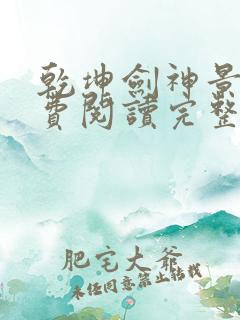 乾坤劍神景
費閱讀完整
肥宅大爺
未经同意禁止转载